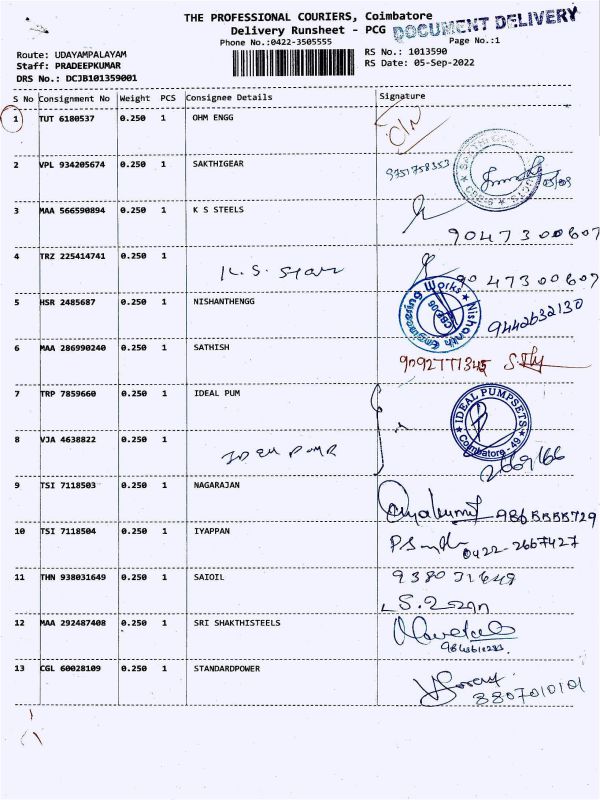 THE PROFESSIONAL COURIERS, Coimbatore
DOCUMENT DELIVERY
Delivery Runsheet - PCG
Phone No.:0422-3505555
Page No.:1
Route: UDAYAMPALAYAM
RS No.: 1013590
Staff: PRADEEPKUMAR
RS Date: 05-Sep-2022
DRS No.: DCJB101359001
S No Consignment No Weight PCS Consignee Details Signature
1 TUT 6180537 0.250 1 OHM ENGG
2 VPL 934205674 0.250 1 SAKTHIGEAR 9751758353
3 MAA 566590894 0.250 1 K S STEELS
9047300607
4 TRZ 225414741 0.250 1 K.S. Steel
9047300607
5 HSR 2485687 0.250 1 NISHANTHENGG Nishanth Engineering Works 9442632130
6 MAA 286990240 0.250 1 SATHISH
9092777345
7 TRP 7859660 0.250 1 IDEAL PUM IDEAL PUMPSETS Coimbatore - 49
8 VJA 4638822 0.250 1 IDEAL PUMP
2669166
9 TSI 7118503 0.250 1 NAGARAJAN
9865555729
10 TSI 7118504 0.250 1 IYAPPAN
0422-2667427
11 THN 938031649 0.250 1 SAIOIL 938031649
12 MAA 292487408 0.250 1 SRI SHAKTHISTEELS
13 CGL 60028109 0.250 1 STANDARDPOWER
8807010101